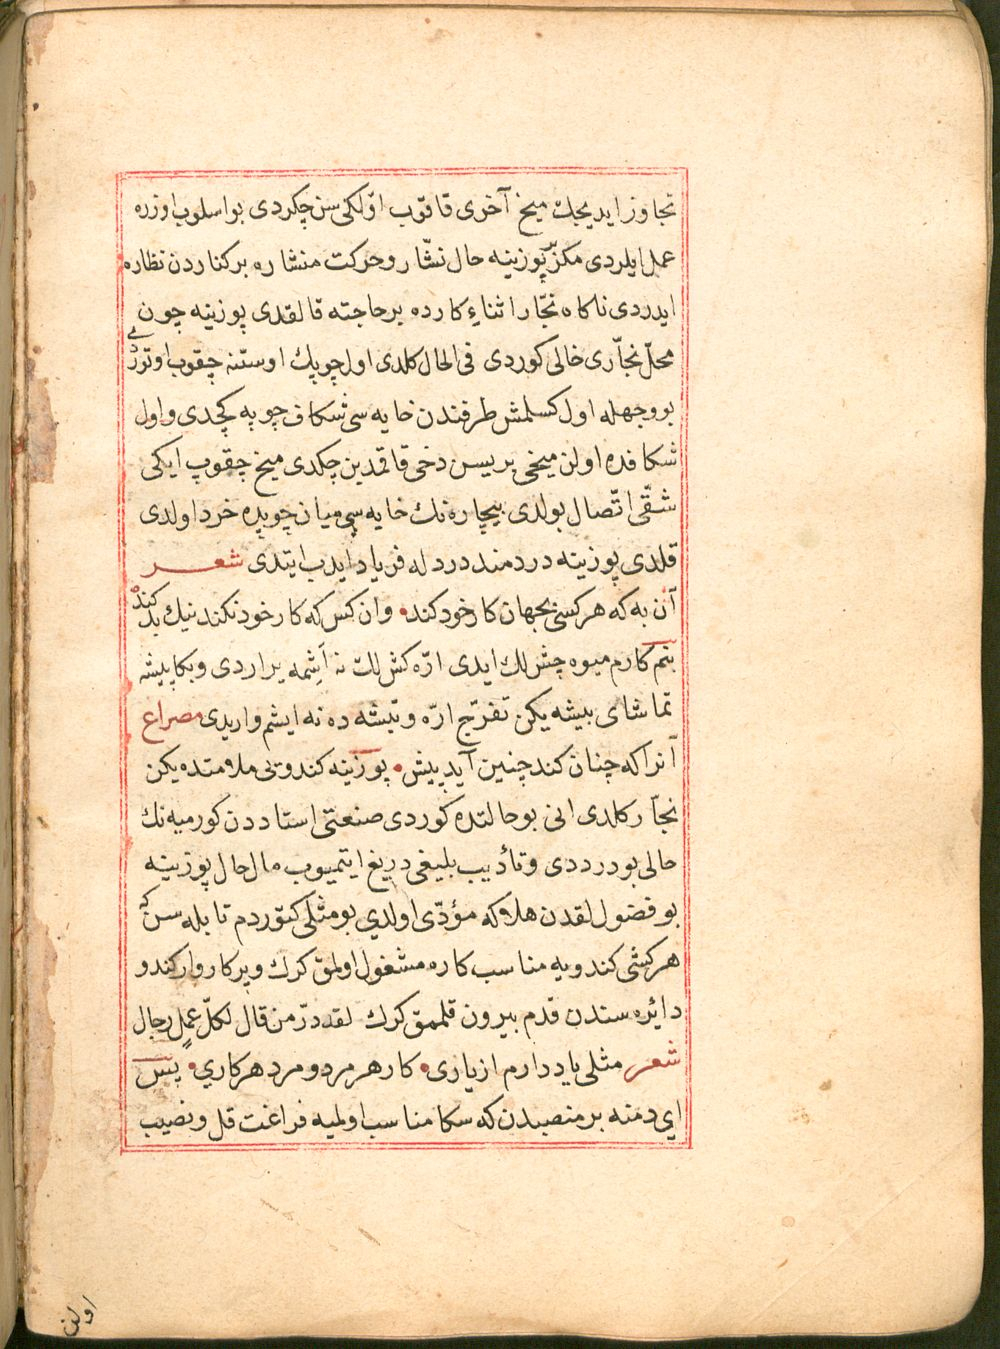 تجاوز ایدیجك میخ آخری قاقوب اوّلكی سن چكردی بو اسلوب اوزره
عمل ایلردی مكر بوزینه حال نشّار و حركت منشاره بر كناردن نظاره
ایدردی ناكاه نجّار اثناءِ كارده بر حاجته قالقدی بوزینه چون
محلّ نجاّری خالی كوردی فی الحال كلدی اول چوبك اوستنه چقوب اوتوردی
بو وجهله اول كسلمش طرفندن خایه سی شكاف چوبه كچدی و اول
شكافده اولن میخی بریسن دخی قاقمدین چكدی میخ چقوب ایكی
شقّی اتّصال بولدی بیچاره نك خایه سی میان چوبده خرد اولدی
قلدی بوزینه دردمند درد له فریاد ایدب ایتدی شعر
آن به كه هر كسی بجهان كار خود كند • وان كس كه كار خود نكند نیك بد كند
بنم كارم میوه چش لك ایدی ارّه كش لك نه اَشِمه یراردی و بكا پیشه
تماشای بیشه یكن تفرّج ارّه و تیشه ده نه ایشم واریدی مصراع
آنرا كه چنان كند چنین آید پیش • بوزینه كندونی ملامتده یكن
نجّار كلدی انی بو حالتده كوردی صنعتی استاددن كورمیه نك
حالی بودر ددی و تأدیب بلیغی دریغ ایتمیوب مال حال بوزینه
بو فضول لقدن هلاكه مؤدّی اولدی بو مثلی كتوردم تا بله سن كه
هر كشی كندویه مناسب كاره مشغول اولمق كرك و پركار وار كندو
دائره سندن قدم بیرون قلممق كرك لقد درّ من قال لكلّ عملٍ رجال
شعر مثلی یاد دارم از یاری • كار هر مرد و مرد هر كاری • پس
ای دمنه بر منصبدن كه سكا مناسب اولمیه فراغت قل و نصیب
اولن